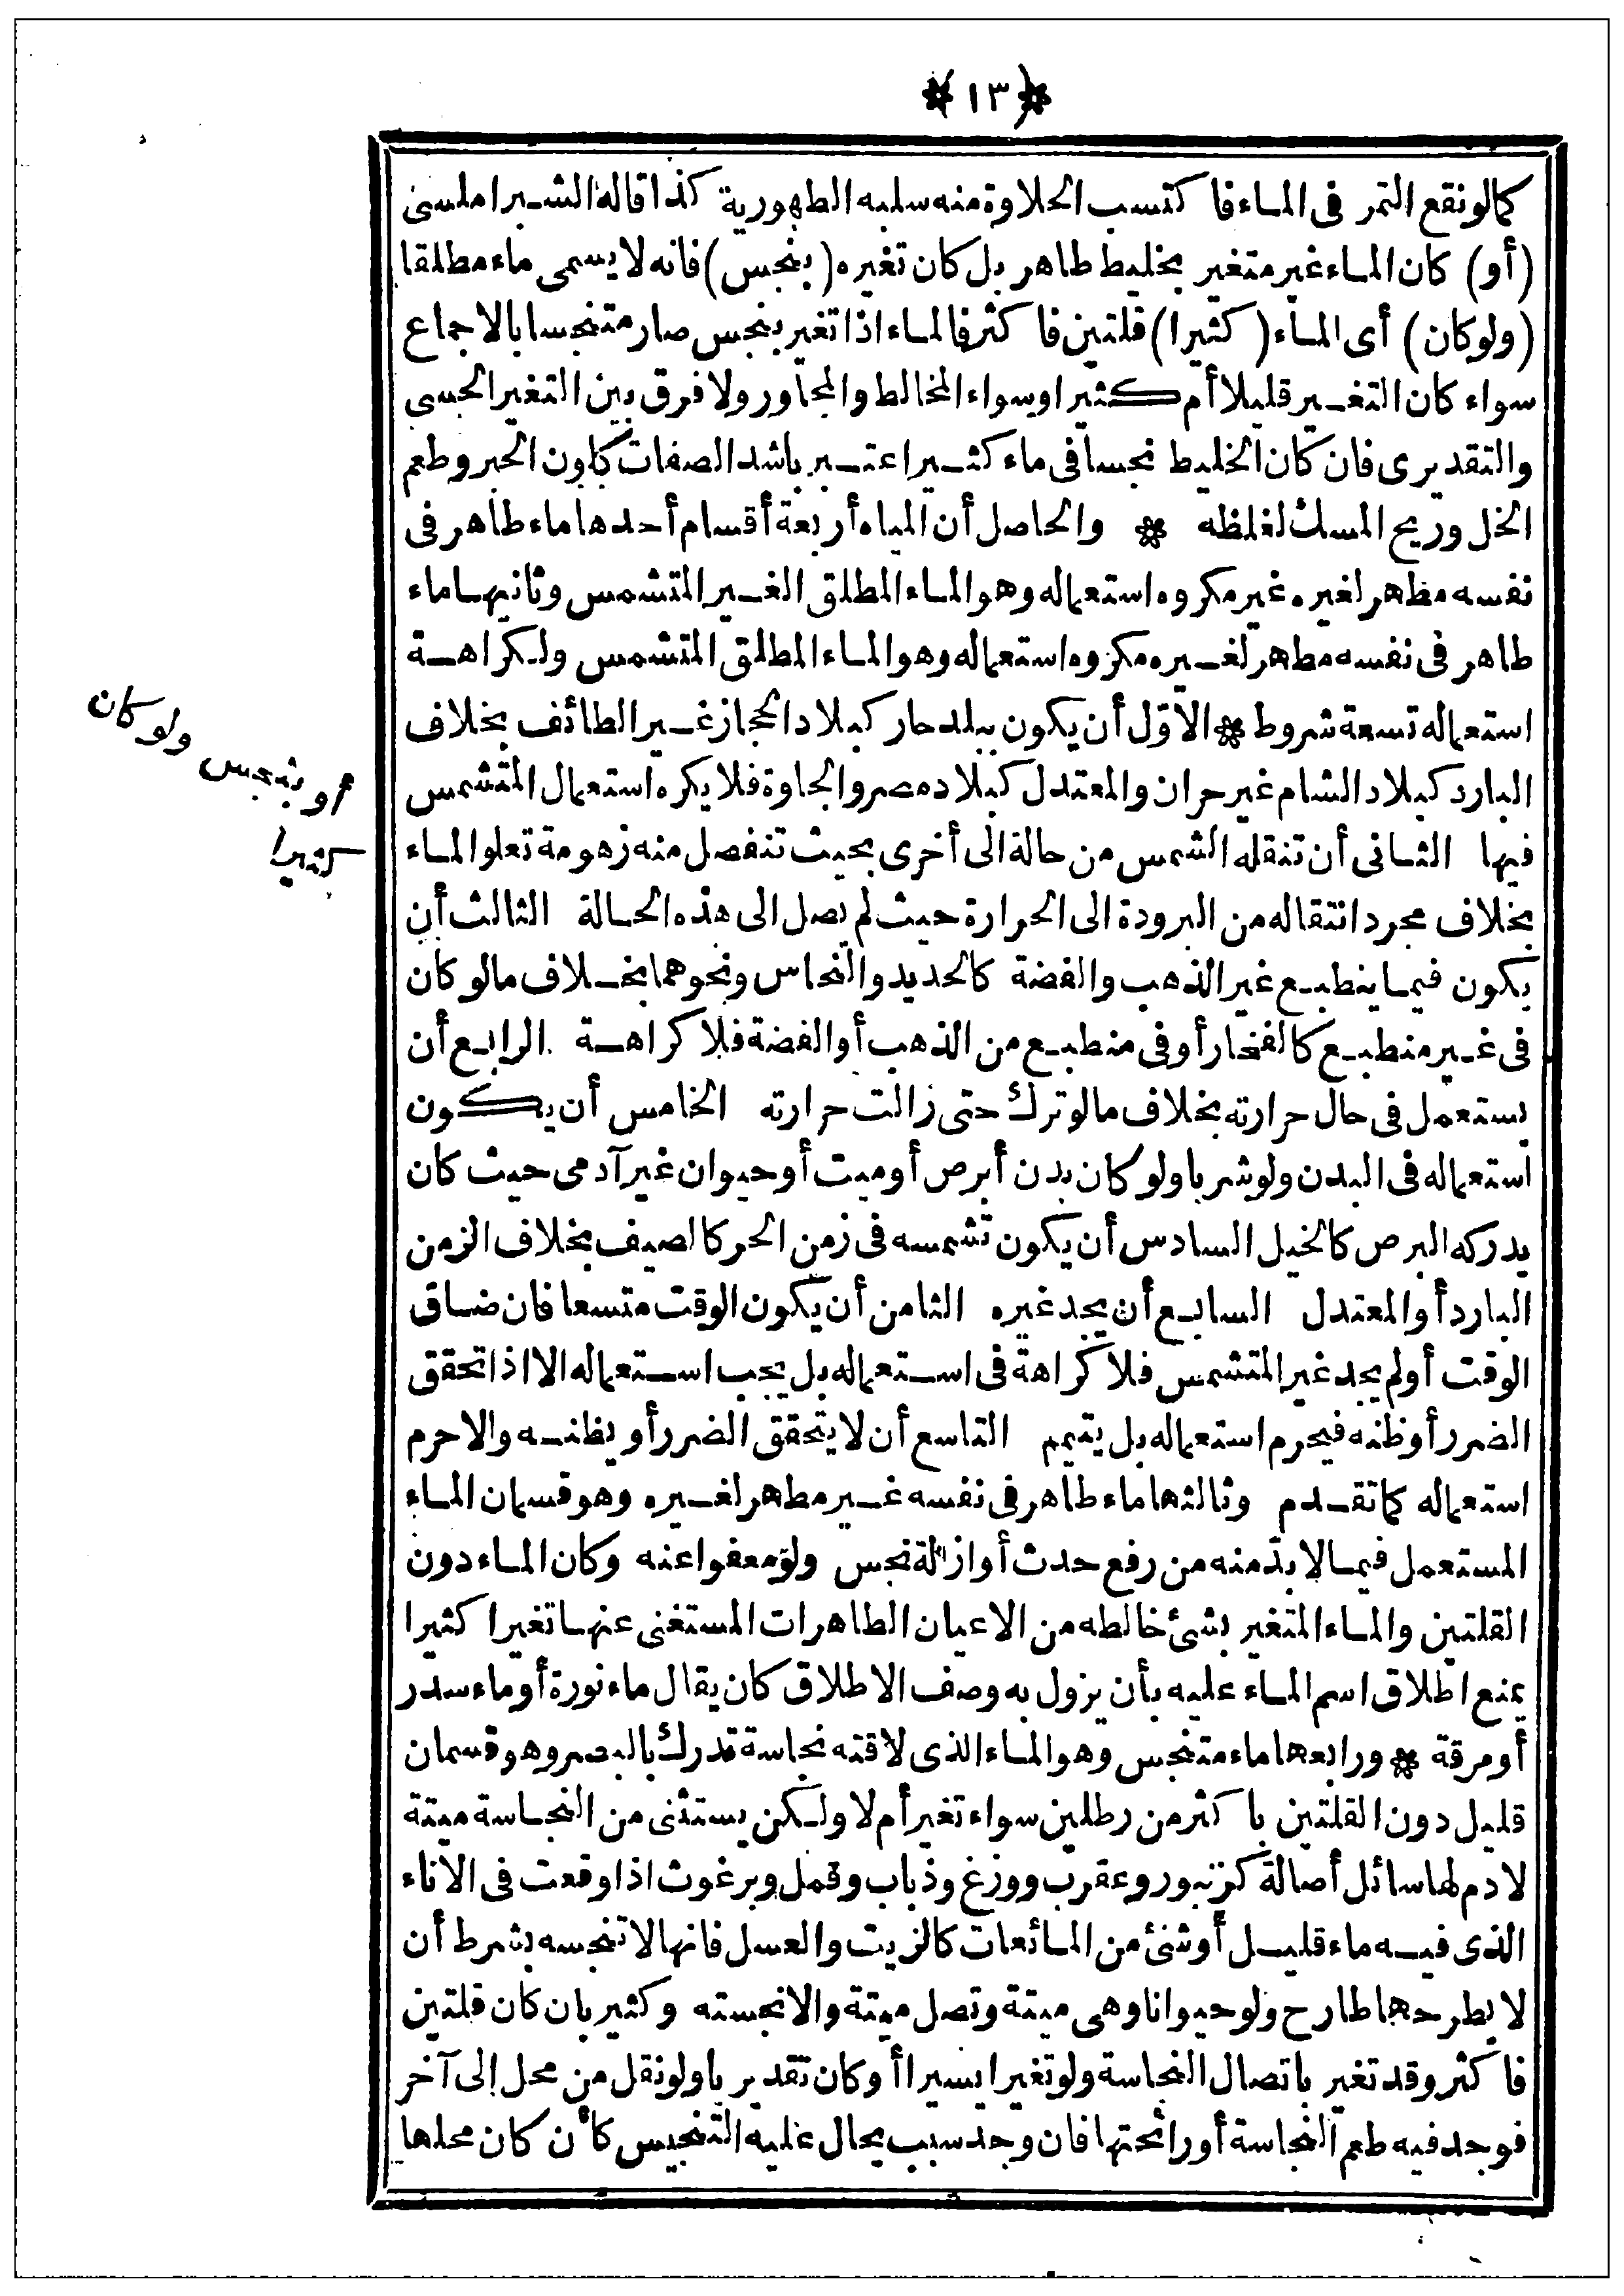 ﴿١٣﴾
كمالو نقع التمر فى الماء فاكتسب الحلاوة منه سلبه الطهورية كذا قاله الشبراملسى
(أو) كان الماء غير متغير بخليط طاهر بل كان تغيره (بنجس) فانه لا يسمى ماء مطلقا
(ولو كان) أى الماء (كثيرا) قلتين فاكثر فالماء اذا تغير بنجس صار متنجسا بالاجماع
سواء كان التغير قليلا أم كثيرا وسواء المخالط والمجاور ولا فرق بين التغير الحسى
والتقديرى فان كان الخليط نجسا فى ماء كثير اعتبر باشد الصفات كلون الحبر وطعم
الخل وريح المسك لغلظه * والحاصل أن المياه أربعة أقسام أحدها ماء طاهر فى
نفسه مطهر لغيره غير مكروه استعماله وهو الماء المطلق الغير المتشمس وثانيها ماء
طاهر فى نفسه مطهر لغيره مكروه استعماله وهو الماء المطلق المتشمس ولكراهة
استعماله تسعة شروط * الاوّل أن يكون ببلد حار كبلاد الحجاز غير الطائف بخلاف
البارد كبلاد الشام غير حران والمعتدل كبلاد مصر والجاوة فلا يكره استعمال المتشمس
فيها الثانى أن تنقله الشمس من حالة الى أخرى بحيث تنفصل منه زهومة تعلو الماء
بخلاف مجرد انتقاله من البرودة الى الحرارة حيث لم يصل الى هذه الحالة الثالث أن
يكون فيما ينطبع غير الذهب والفضة كالحديد والنحاس ونحوهما بخلاف مالو كان
فى غير منطبع كالفخار أو فى منطبع من الذهب أو الفضة فلا كراهة الرابع أن
يستعمل فى حال حرارته بخلاف مالو ترك حتى زالت حرارته الخامس أن يكون
استعماله فى البدن ولو شربا ولو كان بدن أبرص أو ميت أو حيوان غير آدمى حيث كان
يدركه البرص كالخيل السادس أن يكون تشمسه فى زمن الحر كالصيف بخلاف الزمن
البارد أو المعتدل السابع أن يجد غيره الثامن أن يكون الوقت متسعا فان ضاق
الوقت أو لم يجد غير المتشمس فلا كراهة فى استعماله بل يجب استعماله الا اذا تحقق
الضرر أو ظنه فيحرم استعماله بل يتيمم التاسع أن لا يتحقق الضرر أو يظنه والا حرم
استعماله كما تقدم وثالثها ماء طاهر فى نفسه غير مطهر لغيره وهو قسمان الماء
المستعمل فيما لا بدّ منه من رفع حدث أو ازالة نجس ولو معفوا عنه وكان الماء دون
القلتين والماء المتغير بشئ خالطه من الاعيان الطاهرات المستغنى عنها تغيرا كثيرا
يمنع اطلاق اسم الماء عليه بأن يزول به وصف الاطلاق كان يقال ماء نورة أو ماء سدر
أو مرقة * ورابعها ماء متنجس وهو الماء الذى لاقته نجاسة تدرك بالبصر وهو قسمان
قليل دون القلتين باكثر من رطلين سواء تغير أم لا ولكن يستثنى من النجاسة ميتة
لا دم لها سائل أصالة كزنبور وعقرب ووزغ وذباب وقمل وبرغوث اذا وقعت فى الاناء
الذى فيه ماء قليل أو شئ من المائعات كالزيت والعسل فانها لا تنجسه بشرط أن
لا يطرحها طارح ولو حيوانا وهى ميتة وتصل ميتة والا نجسته وكثير بان كان قلتين
فاكثر وقد تغير باتصال النجاسة ولو تغيرا يسيرا أو كان تقديريا ولو نقل من محل إلى آخر
فوجد فيه طعم النجاسة أو رائحتها فان وجد سبب يحال عليه التنجيس كأن كان محلها
أو بنجس ولو كان
كثيرا